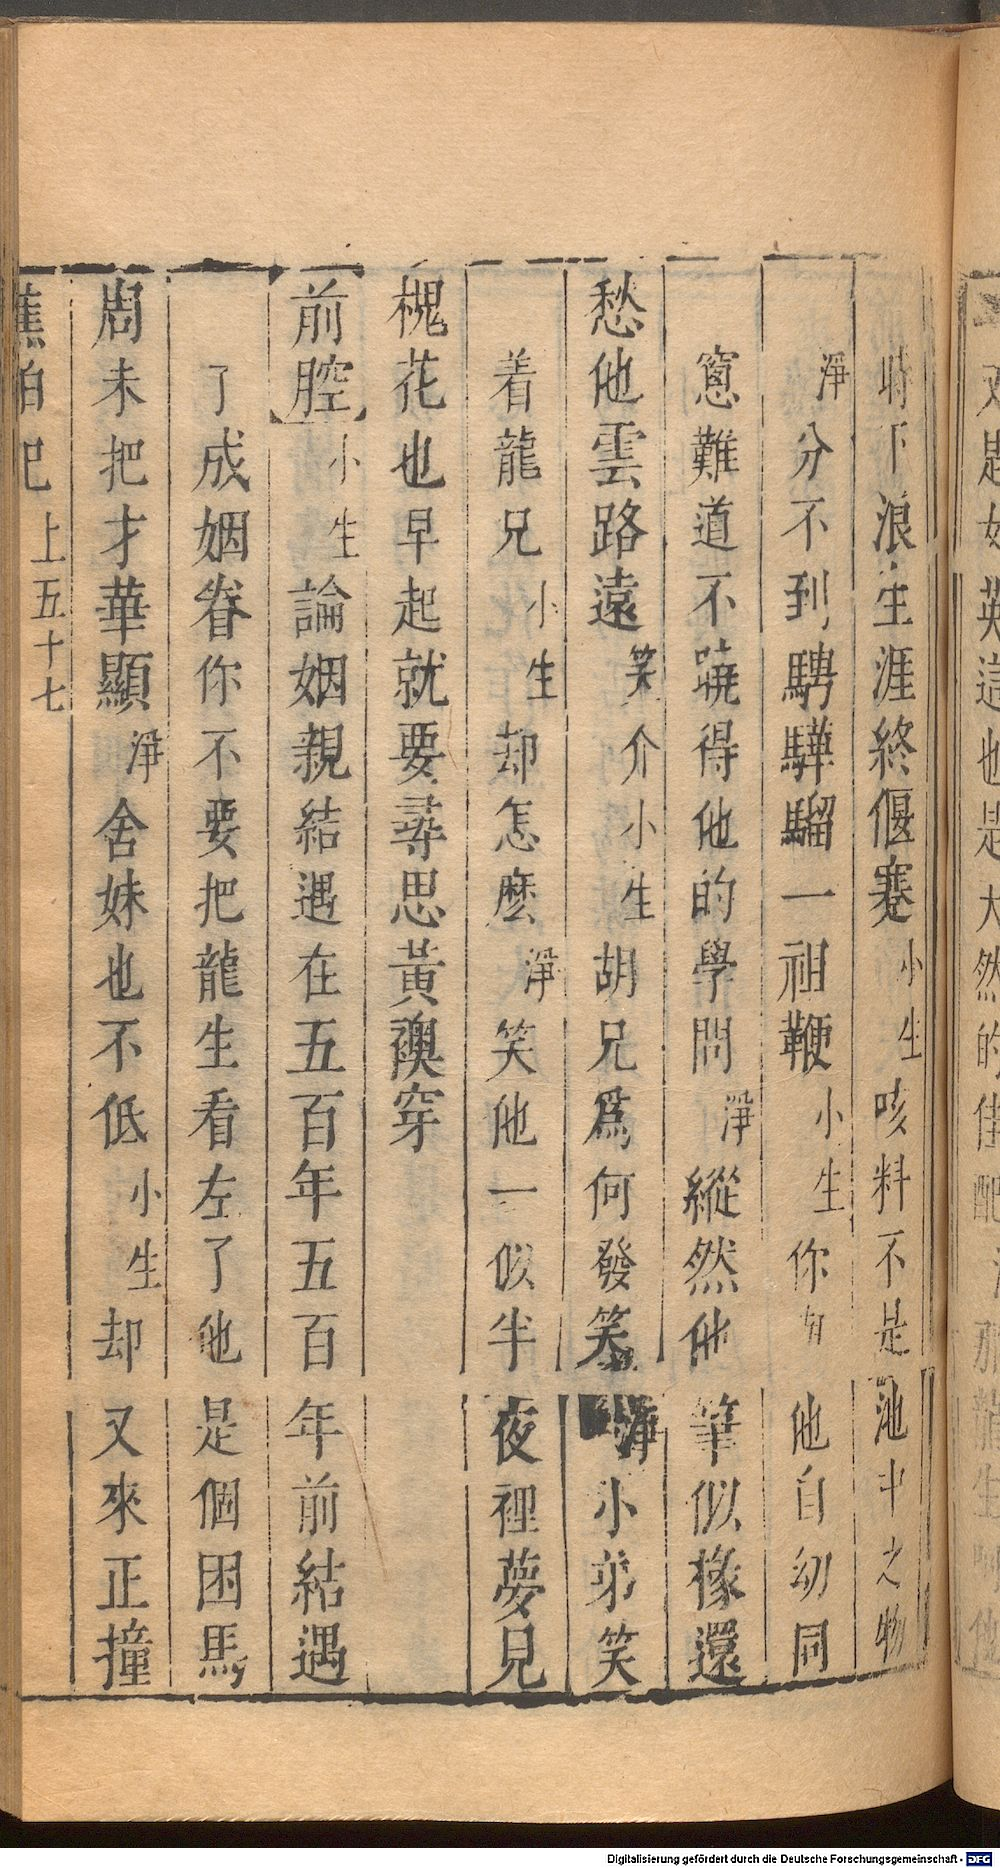 時下浪生涯終偃蹇小生咳料不是池中之物
淨分不到騁驊騮一祖鞭小生你與他自幼同
窻難道不曉得他的學問淨縱然他筆似椽還
愁他雲路遠笑介小生胡兄爲何發笑淨小弟笑
着龍兄小生却怎麽淨笑他一似半夜裡夢見
槐花也早起就要尋思黃襖穿
前腔小生論姻親結遇在五百年五百年前結遇
了成姻眷你不要把龍生看左了他是個困馬
周未把才華顯淨舍妹也不低小生却又來正撞
蕉帕記 上五十七
Digitalisierung gefördert durch die Deutsche Forschungsgemeinschaft - DFG